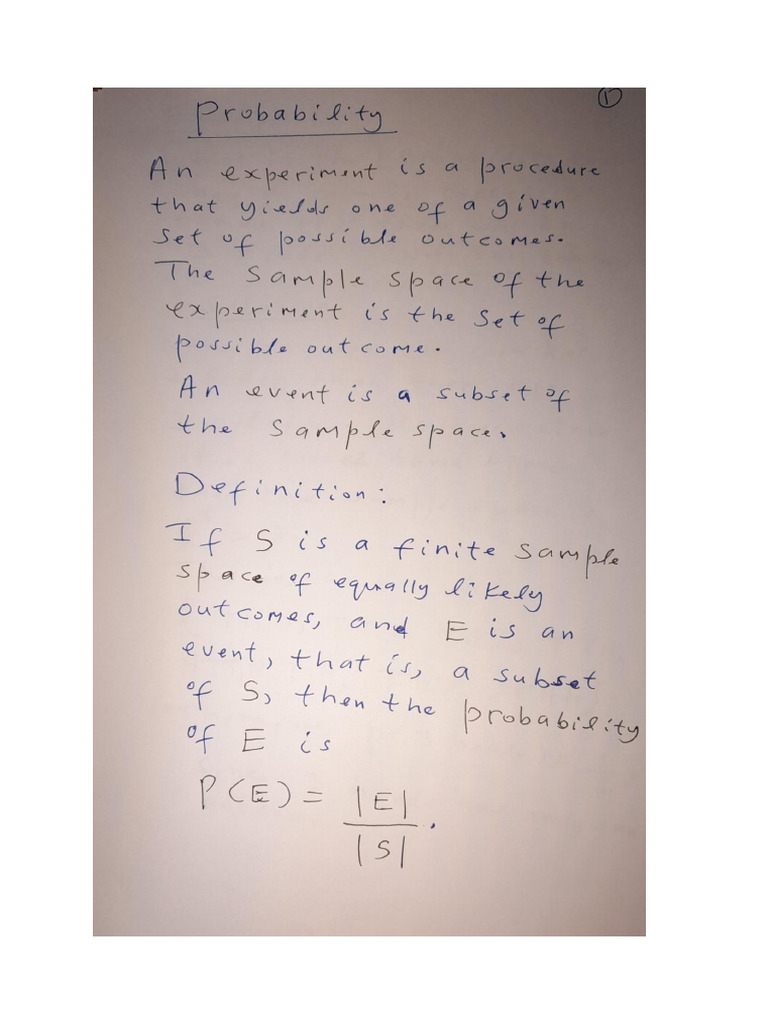 ①
Probability
An experiment is a procedure
that yields one of a given
set of possible outcomes.
The sample space of the
experiment is the set of
possible outcome.
An event is a subset of
the sample space.
Definition:
If S is a finite sample
space of equally likely
outcomes, and E is an
event, that is, a subset
of S, then the probability
of E is
P(E) = |E|
|S| .